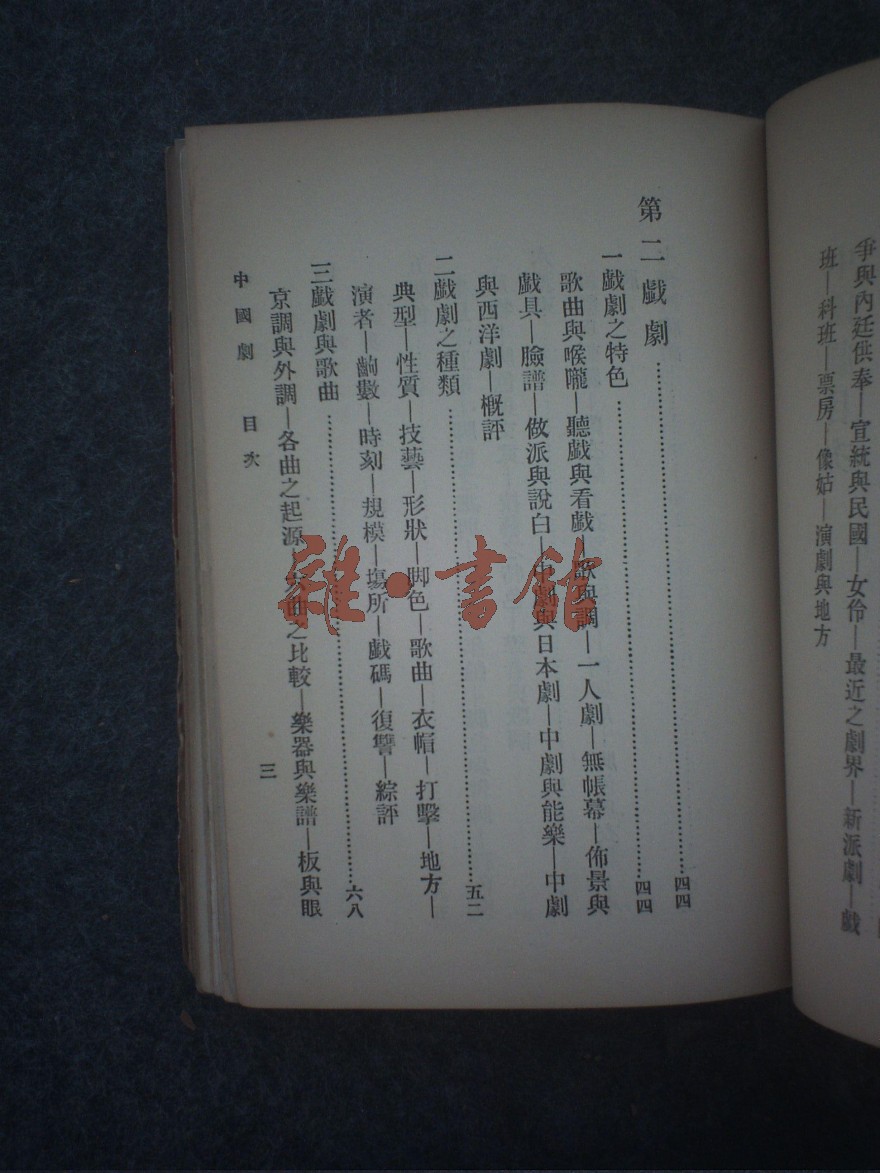 爭與內廷供奉—宣統與民國—女伶—最近之劇界—新派劇—戲
班—科班—票房—像姑—演劇與地方
第二 戲劇……四四
一 戲劇之特色……四四
歌曲與喉嚨—聽戲與看戲—歌與調—一人劇—無帳幕—佈景與
戲具—臉譜—做派與說白—中劇與日本劇—中劇與能樂—中劇
與西洋劇—概評
二 戲劇之種類……五二
典型—性質—技藝—形狀—脚色—歌曲—衣帽—打擊—地方—
演者—齣數—時刻—規模—塲所—戲碼—復讐—綜評
三 戲劇與歌曲……六八
京調與外調—各曲之起源—大曲之比較—樂器與樂譜—板與眼
中國劇 目次
三
雜·書館